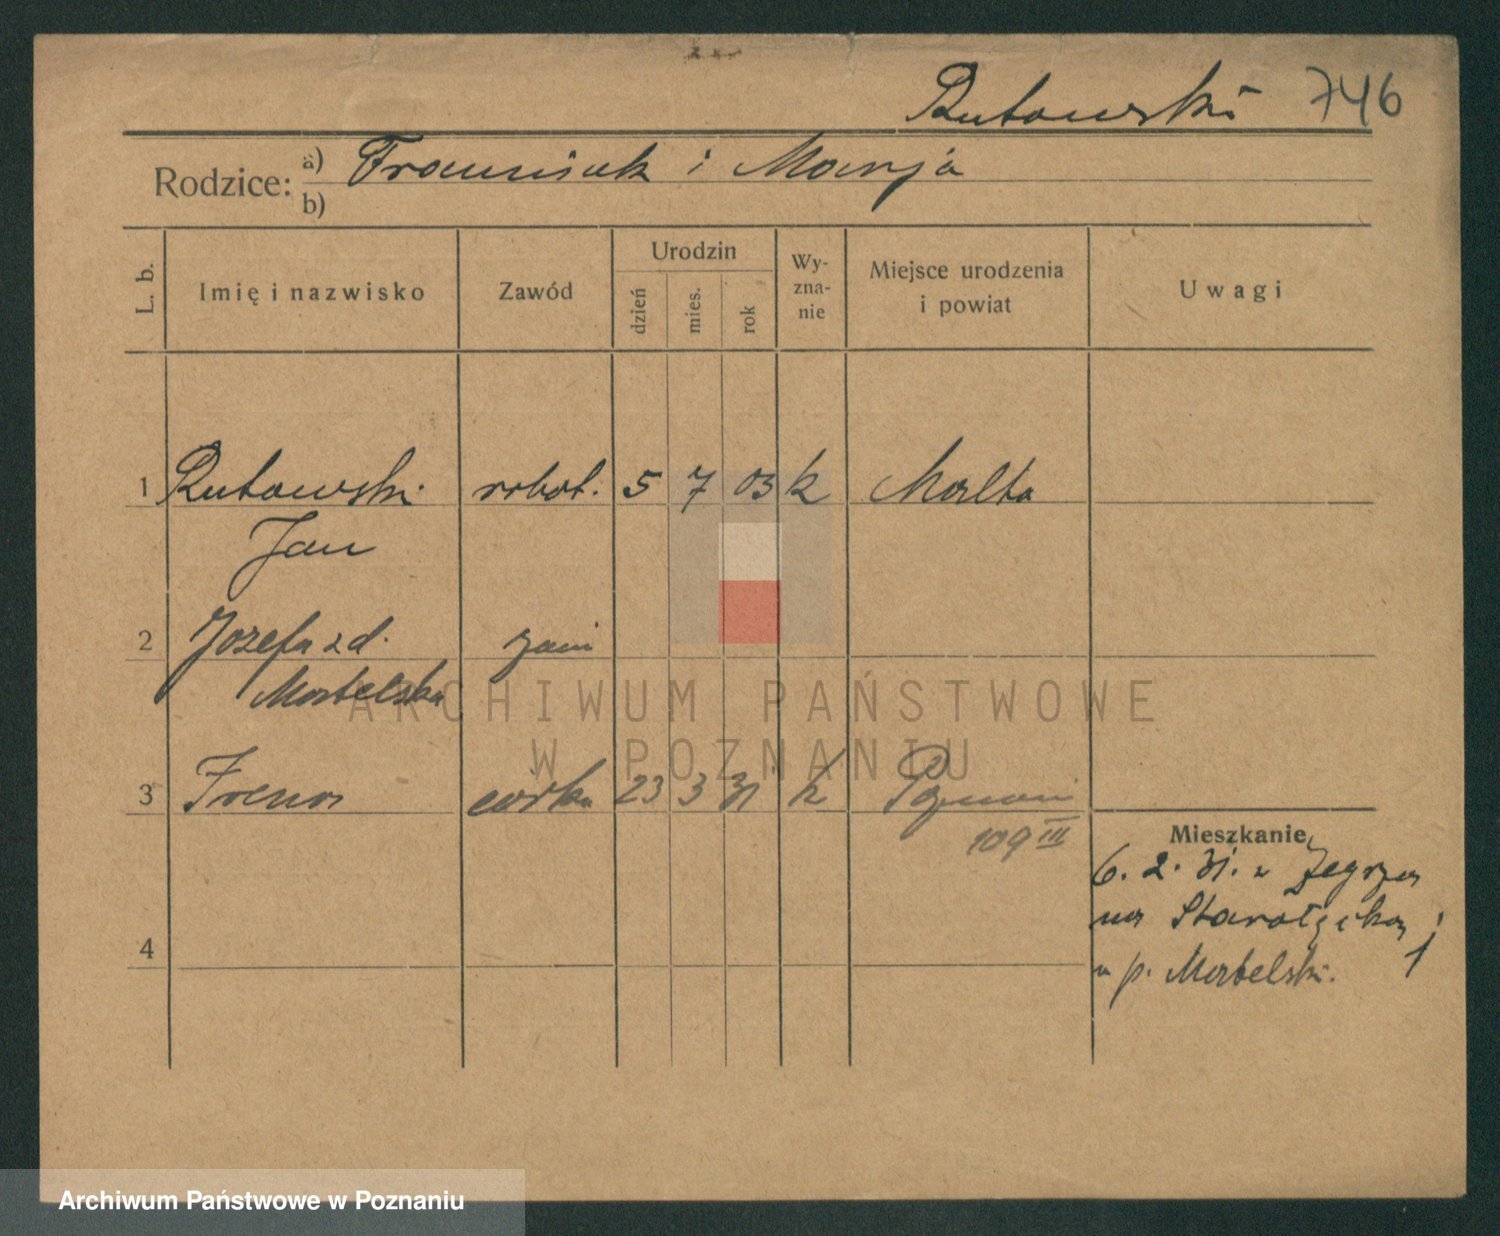 Rutowski 746
Rodzice: a) Franciszek i Marja
b)
L. b. Imię i nazwisko Zawód Urodzin dzień mies. rok Wy-zna-nie Miejsce urodzenia i powiat Uwagi
1 Rutowski robot. 5 7 03 k Malta
Jan
2 Józefa z d.
3 Irena córka 23 3 31 k Poznań
109 III
Mieszkanie
6. 2. 31. z Żegrza
na Starołęcka
4
u p. Martelski.
ARCHIWUM PAŃSTWOWE
W POZNANIU
Archiwum Państwowe w Poznaniu